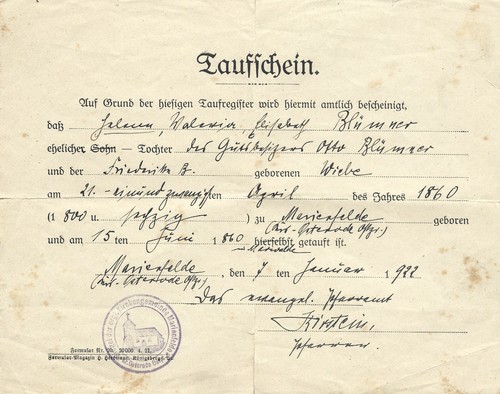 Taufschein.
Auf Grund der hiesigen Taufregister wird hiermit amtlich bescheinigt,
daß Helena, Valeria Elisabeth Blümner
ehelicher Sohn – Tochter des Gutsbesitzers Otto Blümner
und der Friederike geborenen Wiebe
am 21. - einundzwanzigsten April des Jahres 1860
(1 800 u. sechzig) zu Marienfelde geboren
(Krs. Osterode Ostpr.)
und am 15 ten Juni 1860 hierselbst getauft ist.
Marienfelde, den 7 ten Januar 1922
(Krs. Osterode Ostpr.)
Das evangel. Pfarramt
Kirstein,
Pfarrer.
Kirchengemeinde Marienfelde
Formular Nr. 30000. 4. 21.
Formular-Magazin Königsberg Pr.